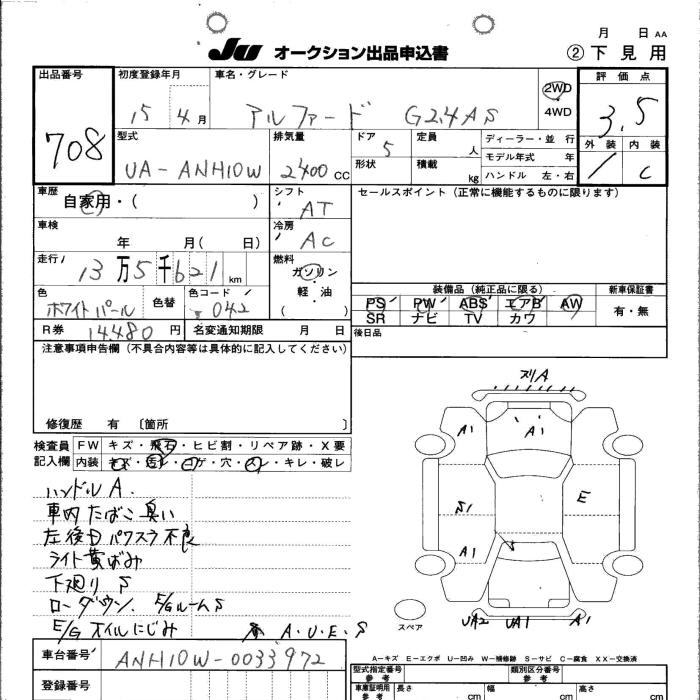 月 日 AA
JU オークション出品申込書 ②下見用
出品番号 初度登録年月 車名・グレード 評価点
708 15 4月 アルファード G2.4AS 2WD 4WD 3.5
外装 内装
1 C
型式 排気量 ドア 定員 ディーラー・並行
UA-ANH10W 2400cc 5 人 モデル年式 年
形状 積載 kg ハンドル 左・右
車歴 シフト セールスポイント(正常に機能するものに限ります)
自家用・( ) AT
車検 冷房
年 月( 日) AC
走行 燃料
13万5千621km ガソリン
軽・油
( )
色 色替 色コード
ホワイトパール 042
装備品(純正品に限る) 新車保証書
PS PW ABS エアB AW 有・無
SR ナビ TV カワ
R券 14,480円 名変通知期限 月 日 後日品
注意事項申告欄(不具合内容等は具体的に記入してください)
修復歴 有 〔箇所 〕
検査員記入欄
FW キズ・飛石・ヒビ割・リペア跡・X要
内装 キズ・汚レ・コゲ・穴・スレ・キレ・破レ
ハンドルA.
車内たばこ臭い
左後Dパワスラ不良
ライト黄ばみ
下廻りS
ローダウン. E/GルームS
E/Gオイルにじみ A.U.E.S
スリA
A1 A1
S1 E
A1
UA2 UA1 A1
スペア
A-キズ E-エクボ U-凹み W-補修跡 S-サビ C-腐食 XX-交換済
車台番号 ANH10W-0033972
型式指定番号 参考 類別区分番号 参考
登録番号
車庫証明用 参考 長さ cm 幅 cm 高さ cm